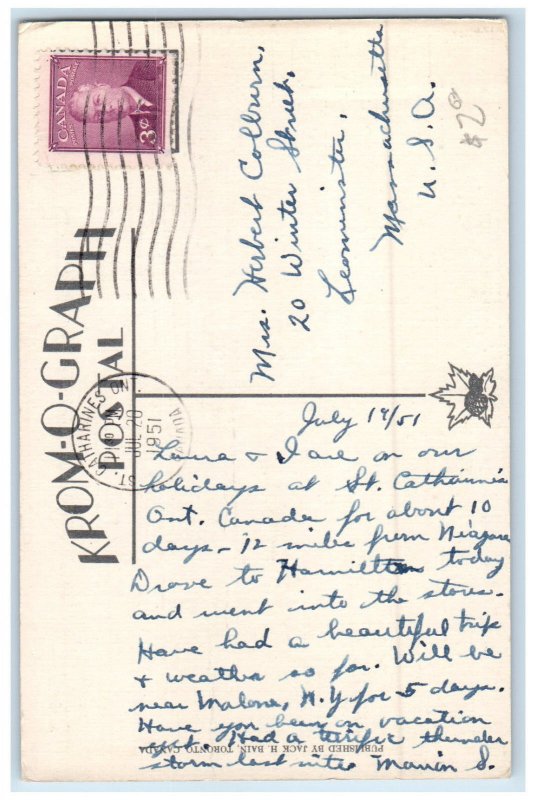 CANADA
POSTES POSTAGE
3¢
KROM-O-GRAPH
POSTAL
ST. CATHARINES ONT.
PM
JUL 20
1951
CANADA
Mrs. Herbert Colburn,
20 Winter Street,
Leominster,
Massachusetts
U.S.A.
$2
July 19/51
Laura & I are on our
holidays at St. Catharines
Ont. Canada for about 10
days - 12 miles from Niagara
Drove to Hamilton today
and went into the stores.
Have had a beautiful trip
+ weather so far. Will be
near Malone, N.Y for 5 days.
Have you been on vacation
yet. Had a terrific thunder
storm last nite Marion S.
PUBLISHED BY JACK H. BAIN, TORONTO, CANADA